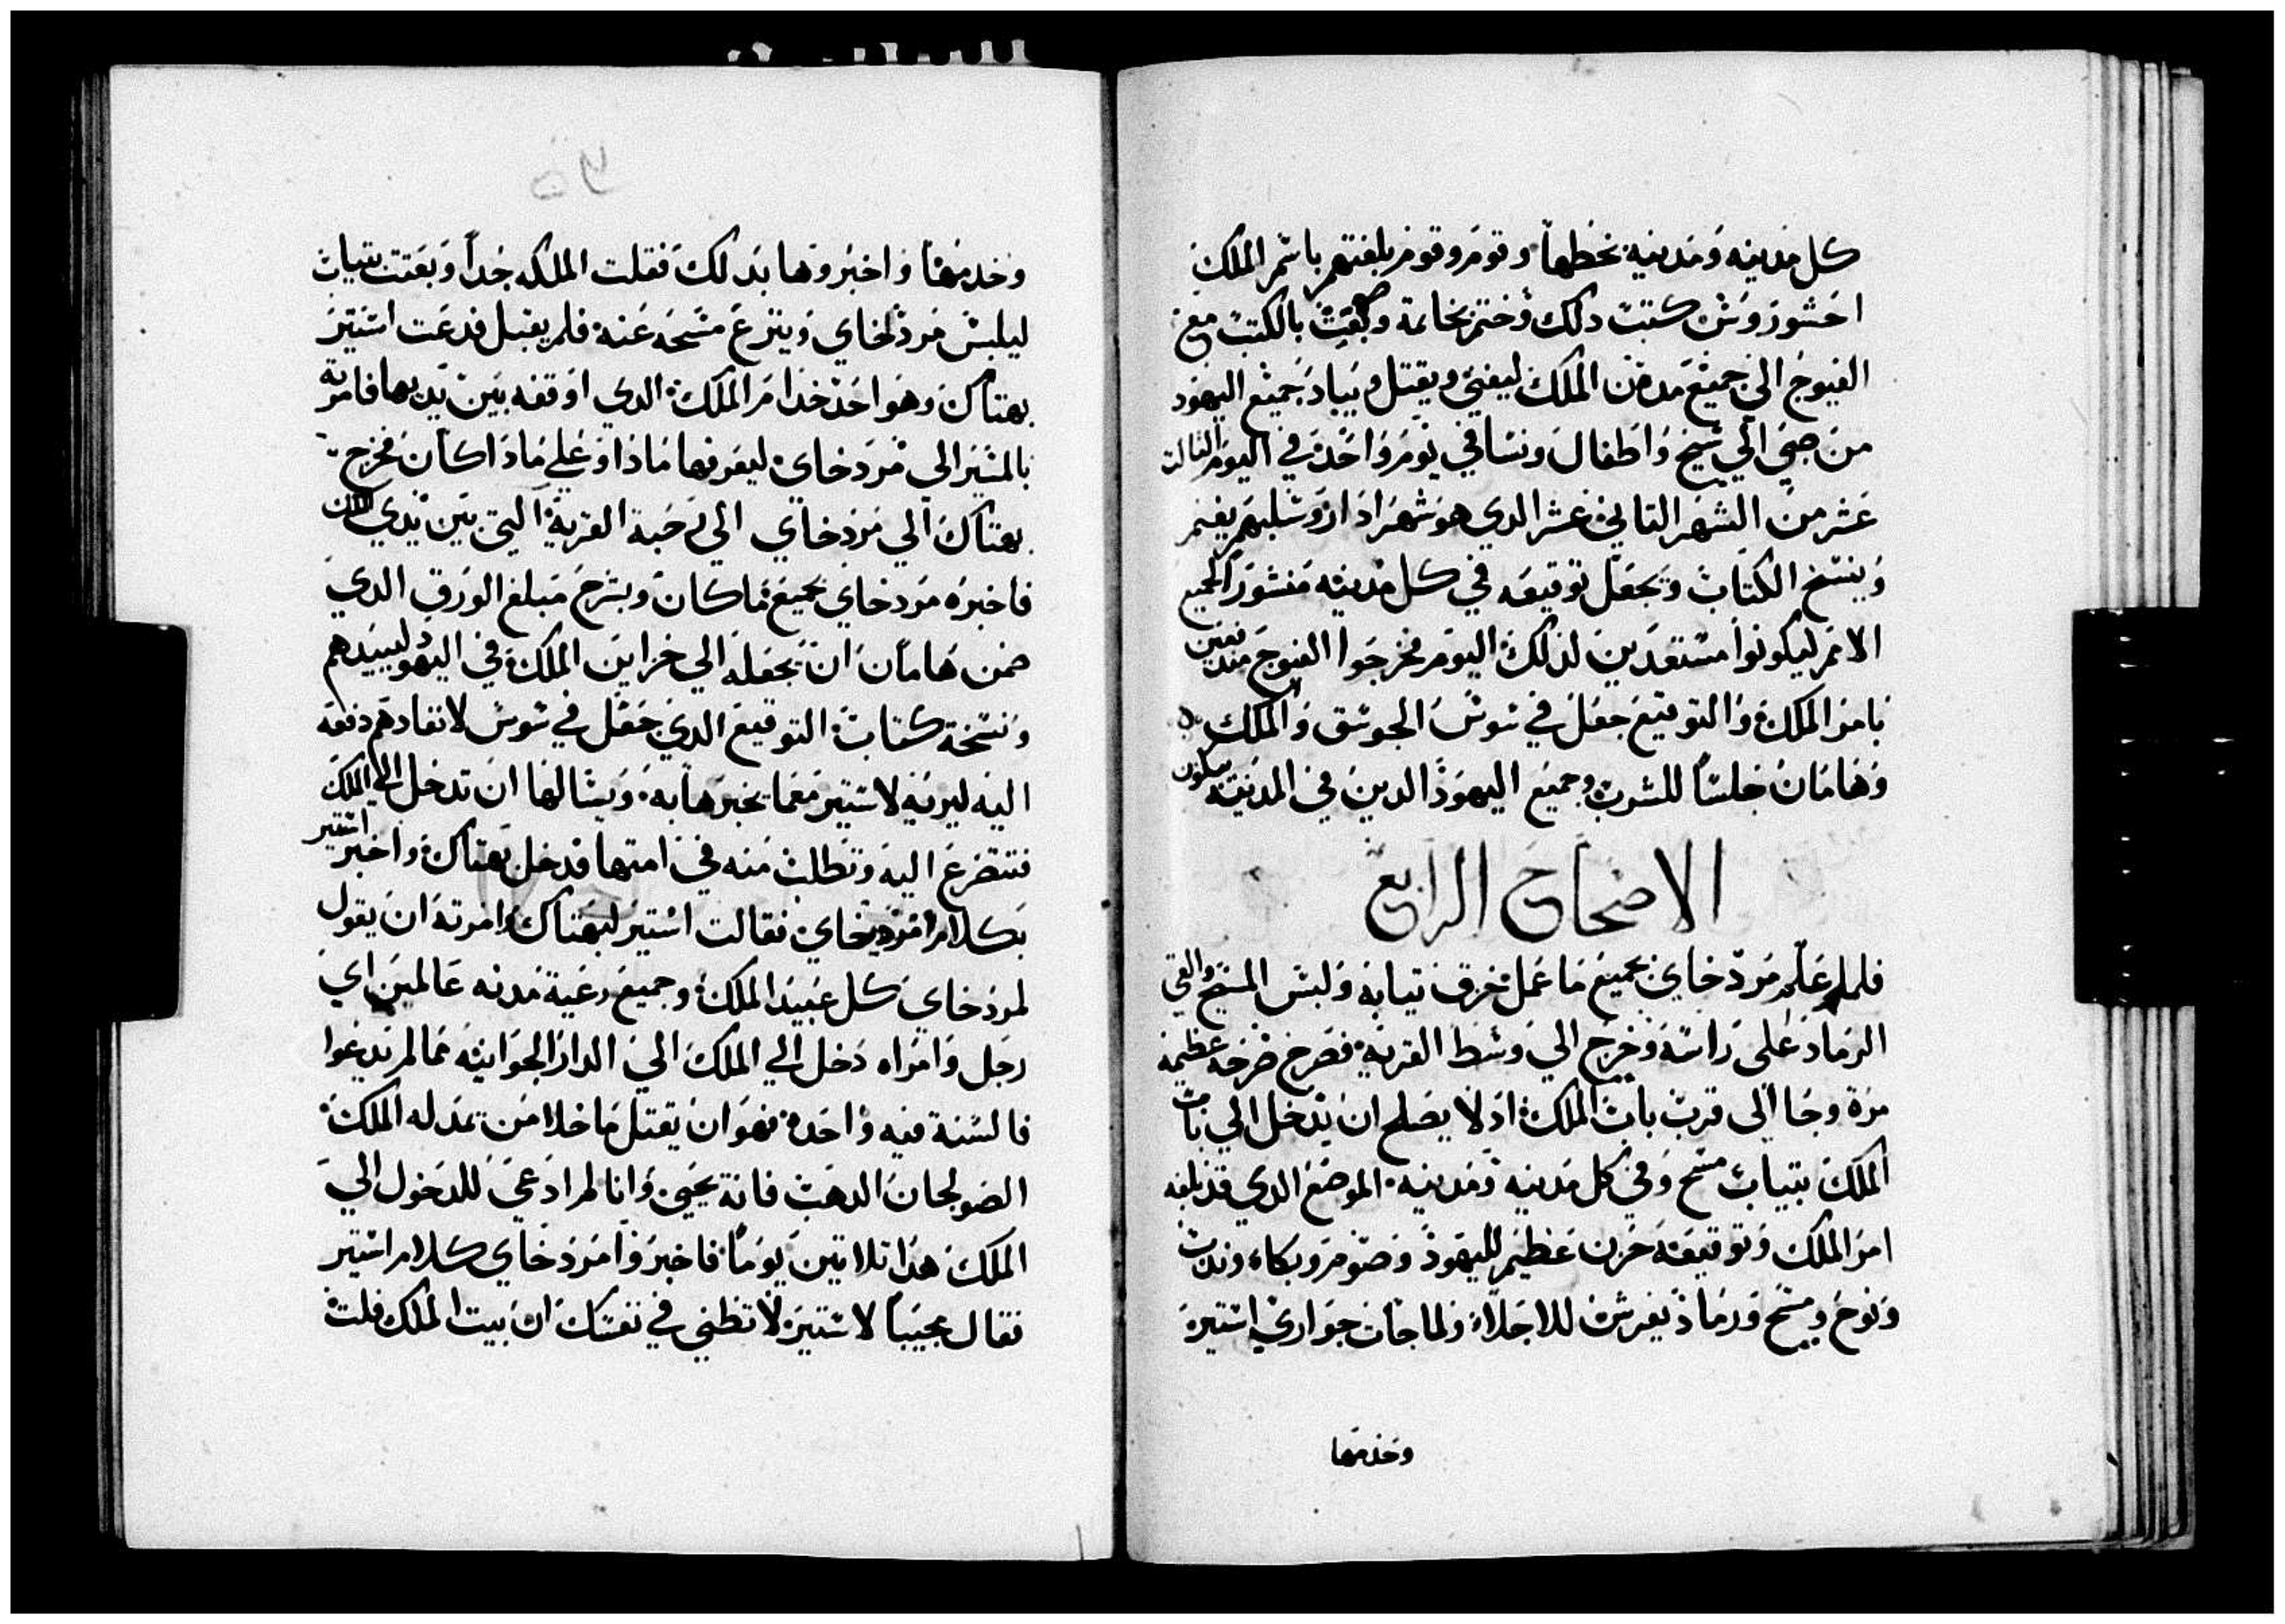 كل مدينه ومدينه بخطها وقوم وقوم بلغتهم باسم الملك
احشوروش كتبت دلك وختم بخاتمة وبعث بالكتب مع
الفيوج الي جميع مدن الملك ليفني ويقتل ويباد جميع اليهود
من صبي الي شيخ واطفال ونسا في يوم واحد في اليوم التالت
عشر من الشهر التاني عشر الدي هو شهر ادار وسلبهم يغنم
وينسخ الكتاب ويجعل توقيعه في كل مدينه منشورا لجميع
الامم ليكونوا مستعدين لدلك اليوم فخرجوا الفيوج مندفعين
بامر الملك والتوقيع جعل في شوش الجوسق والملك
وهامان جلسا للشرب وجميع اليهود الدين في المدينه
الاصحاح الرابع
فلما علم مردخاي بجميع ما عمل خرق تيابه ولبس المسح والقي
الرماد على راسه وخرج الي وسط القريه فصرخ صرخه عظيمه
مرة وجا الى قرب باب الملك اد لا يصلح ان يدخل الي باب
الملك بتياب مسح وفي كل مدينه ومدينه الموضع الدي قد بلغه
امر الملك وتوقيعه حزن عظيم لليهود وصوم وبكاء وندب
ونوح ومسح ورماد يفرش للاجلاء ولما جات جواري استير
وخدمها
وخدمها واخبروها بدلك فقلت الملكه جدا وبعتت بتياب
ليلبس مردخاي وينزع مسحه عنه فلم يقبل فدعت استير
بهتاك وهو احد خدام الملك الدي اوقفه بين يديها فامرته
بالمسير الى مردخاي ليعرفها مادا وعلي مادا كان فخرج
بهتاك الي مردخاي الي رحبة القرية التي بين يدي الملك
فاخبره مردخاي بجميع ما كان وبشرح مبلغ الورق الدي
ضمن هامان ان يجعله الي خزاين الملك في اليهود ليبيدهم
ونسخة كتاب التوقيع الدي جعل في شوش لانفادهم دفعه
اليه ليريه لاستير معما يخبرها به ويسالها ان تدخل الي الملك
فتتضرع اليه وتطلب منه في امتها فدخل بهتاك واخبر استير
بكلام مردخاي فقالت استير لبهتاك وامرته ان يقول
لمردخاي كل عبيد الملك وجميع رعية مدنه عالمين اي
رجل وامراه دخل الي الملك الي الدار الجوانيه مما لم يدعوا
فالسنة فيه واحده فهو ان يقتل ما خلا من تمد له الملك
الصولجان الدهب فانة يحيي وانا لم ادعي للدخول الي
الملك هدا تلاتين يوما فاخبروا مردخاي كلام استير
فقال مجيبا لاستير لا تظني في نفسك ان بيت الملك فلت